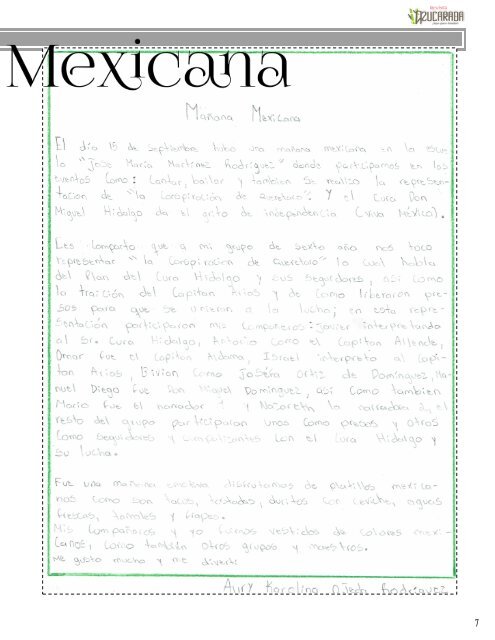 REVISTA
AZUCARADA
Mexicana
Mañana Mexicana
El día 15 de septiembre hubo una mañana mexicana en la escue
la "José María Martínez Rodríguez" donde participamos en los
eventos como: cantar, bailar y tambien se realizo la represen-
tacion de "la conspiración de Querétaro". Y el Cura Don
Miguel Hidalgo da el grito de independencia (VIVA MÉXICO).
Les comparto que a mi grupo de sexto año nos toco
representar "la conspiracion de Querétaro" la cual habla
del Plan del Cura Hidalgo y sus seguidores, así como
la traición del Capitan Arias y de como liberaron pre-
sos para que se unieran a la lucha; en esta repre-
sentación participaron mis compañeros: Javier interpretando
al Sr. Cura Hidalgo, Antonio como el Capitan Allende,
Omar fue el Capitán Aldama, Israel interpreto al Capi-
tan Arias, Bivian como Josefa Ortiz de Dominguez, Ma-
nuel Diego fue Don Miguel Dominguez, así como tambien
Mario fue el narrador 1 y Nazareth la narradora 2, el
resto del grupo participaron unos como presos y otros
como seguidores y simpatizantes con el Cura Hidalgo y
su lucha.
Fue una mañana emotiva disfrutamos de platillos mexica-
nos como son tacos, tostadas, doritos con ceviche, aguas
frescas, tamales y frapes.
Mis compañeros y yo fuimos vestidos de colores mexi-
canos, como también otros grupos y maestros.
Me gusto mucho y me divertí
Aury Karolina Ojeda Rodríguez
7